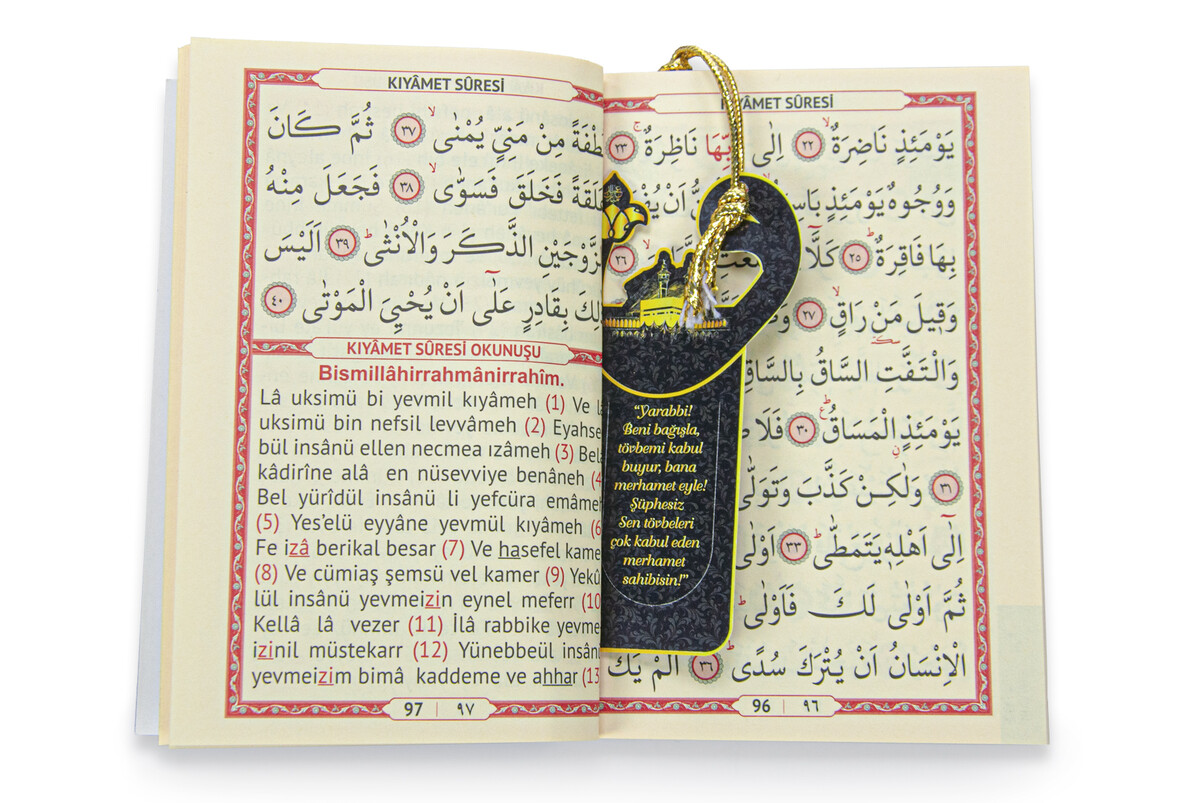 KIYÂMET SÛRESİ
يَوْمَئِذٍ نَاضِرَةٌۙ ٢٢ اِلٰى رَبِّهَا نَاظِرَةٌۚ ٢٣
وَوُجُوهٌ يَوْمَئِذٍ اَنْ
بِهَا فَاقِرَةٌۜ ٢٥ كَلَّٓا ٢٦
وَقِيلَ مَنْ رَاقٍۙ ٢٧
وَالْتَفَّتِ السَّاقُ بِالسَّاقِ
يَوْمَئِذٍ الْمَسَاقُ ٣٠ فَلَا
٣١ وَلٰكِنْ كَذَّبَ وَتَوَلّٰى
اِلٰٓى اَهْلِهٖ يَتَمَطّٰىۜ ٣٣ اَوْلٰى
ثُمَّ اَوْلٰى لَكَ فَاَوْلٰىۜ
الْاِنْسَانُ اَنْ يُتْرَكَ سُدًىۜ ٣٦ اَلَمْ يَكُ
96 | ٩٦
“Yarabbi!
Beni bağışla,
tövbemi kabul
buyur, bana
merhamet eyle!
Şüphesiz
Sen tövbeleri
çok kabul eden
merhamet
sahibisin!”
KIYÂMET SÛRESİ
نُطْفَةً مِنْ مَنِيٍّ يُمْنٰىۙ ٣٧ ثُمَّ كَانَ
عَلَقَةً فَخَلَقَ فَسَوّٰىۙ ٣٨ فَجَعَلَ مِنْهُ
الزَّوْجَيْنِ الذَّكَرَ وَالْاُنْثٰىۜ ٣٩ اَلَيْسَ
ذٰلِكَ بِقَادِرٍ عَلٰٓى اَنْ يُحْيِيَ الْمَوْتٰى ٤٠
KIYÂMET SÛRESİ OKUNUŞU
Bismillâhirrahmânirrahîm.
Lâ uksimü bi yevmil kıyâmeh (1) Ve lâ
uksimü bin nefsil levvâmeh (2) Eyahse
bül insânü ellen necmea ızâmeh (3) Bel
kâdirîne alâ en nüsevviye benâneh (4
Bel yürîdül insânü li yefcüra emâmeh
(5) Yes’elü eyyâne yevmül kıyâmeh (6
Fe izâ berikal besar (7) Ve hasefel kame
(8) Ve cümiaş şemsü vel kamer (9) Yekû
lül insânü yevmeizin eynel meferr (10
Kellâ lâ vezer (11) İlâ rabbike yevme
izinil müstekarr (12) Yünebbeül insân
yevmeizim bimâ kaddeme ve ahhar (13
97 | ٩٧